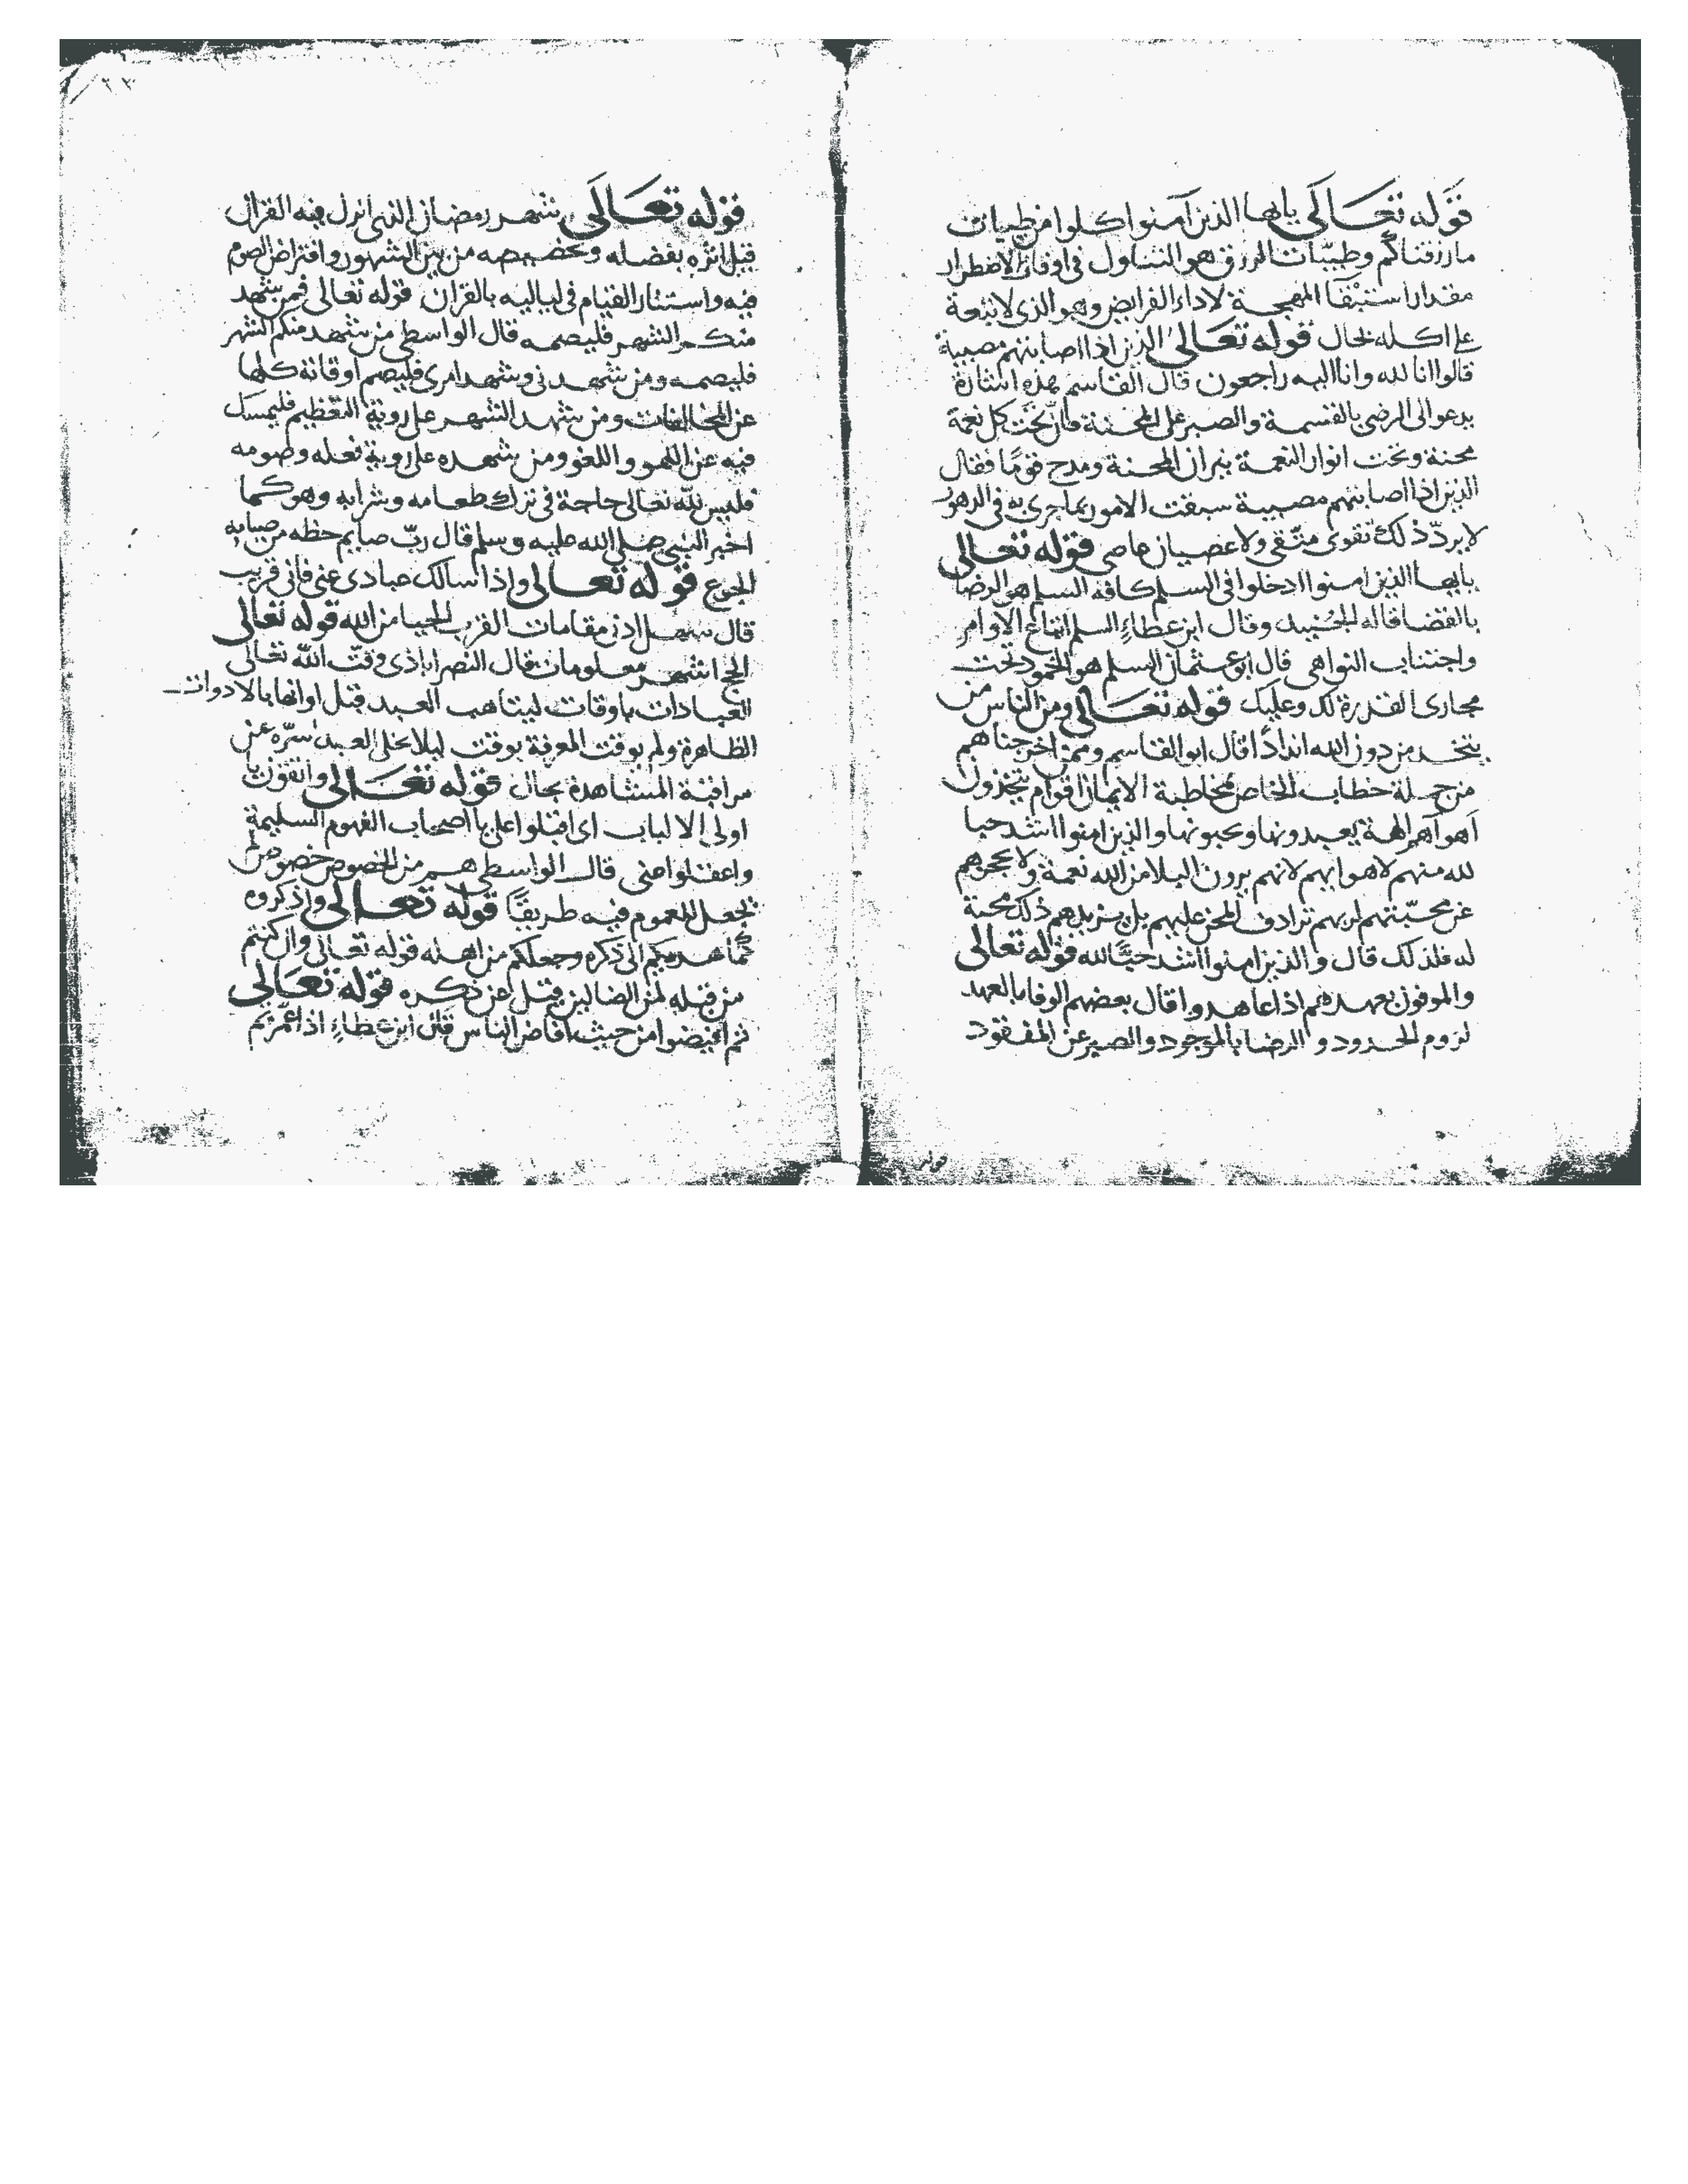 قوله تعالى يا ايها الذين آمنوا كلوا من طيبات
ما رزقناكم وطيبات الرزق هو التناول في اوقات الاضطرار
مقدار استبقا المهجة لاداء الفرايض وهو الذي لا تبعة
على اكله بحال قوله تعالى الذين اذا اصابتهم مصيبة
قالوا انا لله وانا اليه راجعون قال القاسم بهذه اشارة
يدعوا الى الرضى بالقسمة والصبر على المحنة فان تحت كل نعمة
محنة وتحت انوار النعمة نيران المحنة ومدح قومًا فقال
الذين اذا اصابتهم مصيبة سبقت الامور بما جرى به في الدهور
لا يردّ ذلك تقوى متّقي ولا عصيان عاصي قوله تعالى
يا ايها الذين امنوا ادخلوا في السلم كافة السلم هو الرضا
بالقضا قاله الجُنيد وقال ابن عطاءٍ السلم اتباع الاوامر
واجتناب النواهي قال ابو عثمان السلم هو الخمود تحت
مجارى القدرة لك وعليك قوله تعالى ومن الناس من
يتخد من دون الله اندادًا قال ابو القاسم وممن اخرجناهم
من جملة خطاب الخاص مخاطبة الايمان اقوام يتخذون
اهواهم الهة يعبدونها ويحبونها والذين امنوا اشد حبا
لله منهم لاهوايهم لانهم يرون البلا من الله نعمة ولا يحجزهم
عن محبّتهم لربهم ترادف المحن عليهم بل يزيدهم ذلك محبة
له فلذلك قال والذين امنوا اشد حبًّا لله قوله تعالى
والموفون بعهدهم اذا عاهدوا قال بعضهم الوفا بالعهد
لزوم الحدود و الرضا بالموجود والصبر عن المفقود
قوله
قوله تعالى شهر رمضان الذي انزل فيه القران
قيل اثره بفضله وتخصيصه من بين الشهور وافتراض الصوم
فيه واستنار القيام في لياليه بالقران قوله تعالى فمن شهد
منكم الشهر فليصمه قال الواسطي من شهد منكم الشهر
فليصمه ومن شهدني وشهد امرى فليصم اوقاته كلها
عن المخالفات ومن شهد الشهر على روية التعظيم فليمسك
فيه عن اللهو واللغو ومن شهده على روية فعله وصومه
فليس لله تعالى حاجة في ترك طعامه وشرابه وهو كما
اخبر النبي صلى الله عليه وسلم قال ربّ صايم حظه من صيامه
الجوع قوله تعالى واذا سالك عبادى عني فاني قريب
قال سهل ادنى مقامات القرب الحيا من الله قوله تعالى
الحج اشهر معلومات قال النصراباذى وقّت الله تعالى
العبادات باوقات ليتاهب العبد قبل اوانها بالادوات
الظاهرة ولم يوقت المعرفة بوقت ليلا يخلى العبد سرّه عن
مراقبة المشاهدة بحال قوله تعالى واتقون يا
اولى الالباب اى اقبلوا علي يا اصحاب الفهوم السليمة
واعقلوا عني قال الواسطي هم من الخصوص خصوص لم
يجعل للعموم فيه طريقًا قوله تعالى واذكروه
كما هديكم الى ذكره وجعلكم من اهله قوله تعالى وان كنتم
من قبله لمن الضالين قبل عن ذكره قوله تعالى
ثم افيضوا من حيث افاض الناس قال ابن عطاءٍ اذا